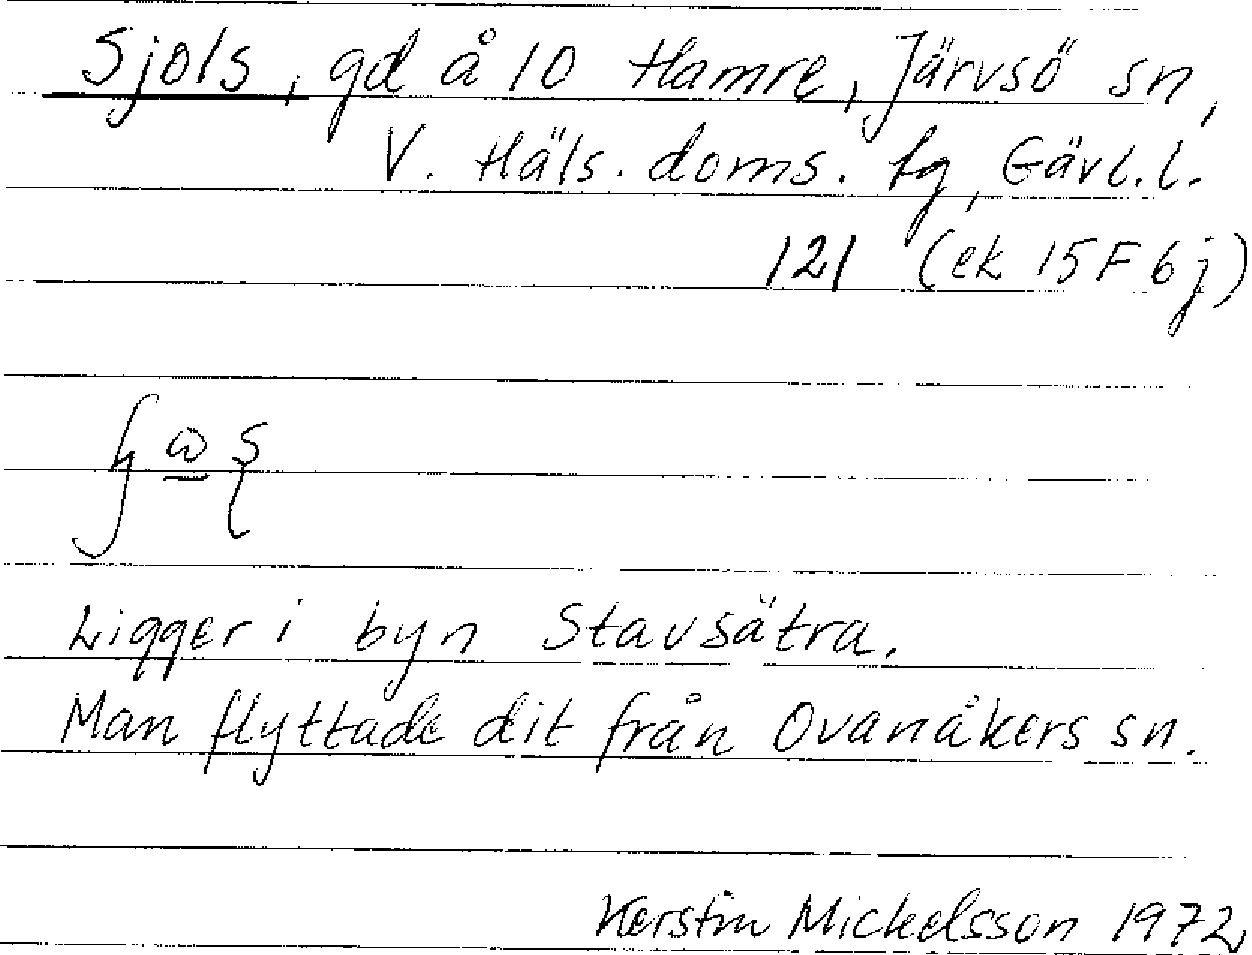 Sjols, gd å 10 Hamre, Järvsö sn,
V. Häls. doms. fg, Gävl.l.
121 (ek 15F6j)
Ligger i byn Stavsätra.
Man flyttade dit från Ovanåkers sn.
Kerstin Mickelsson 1972